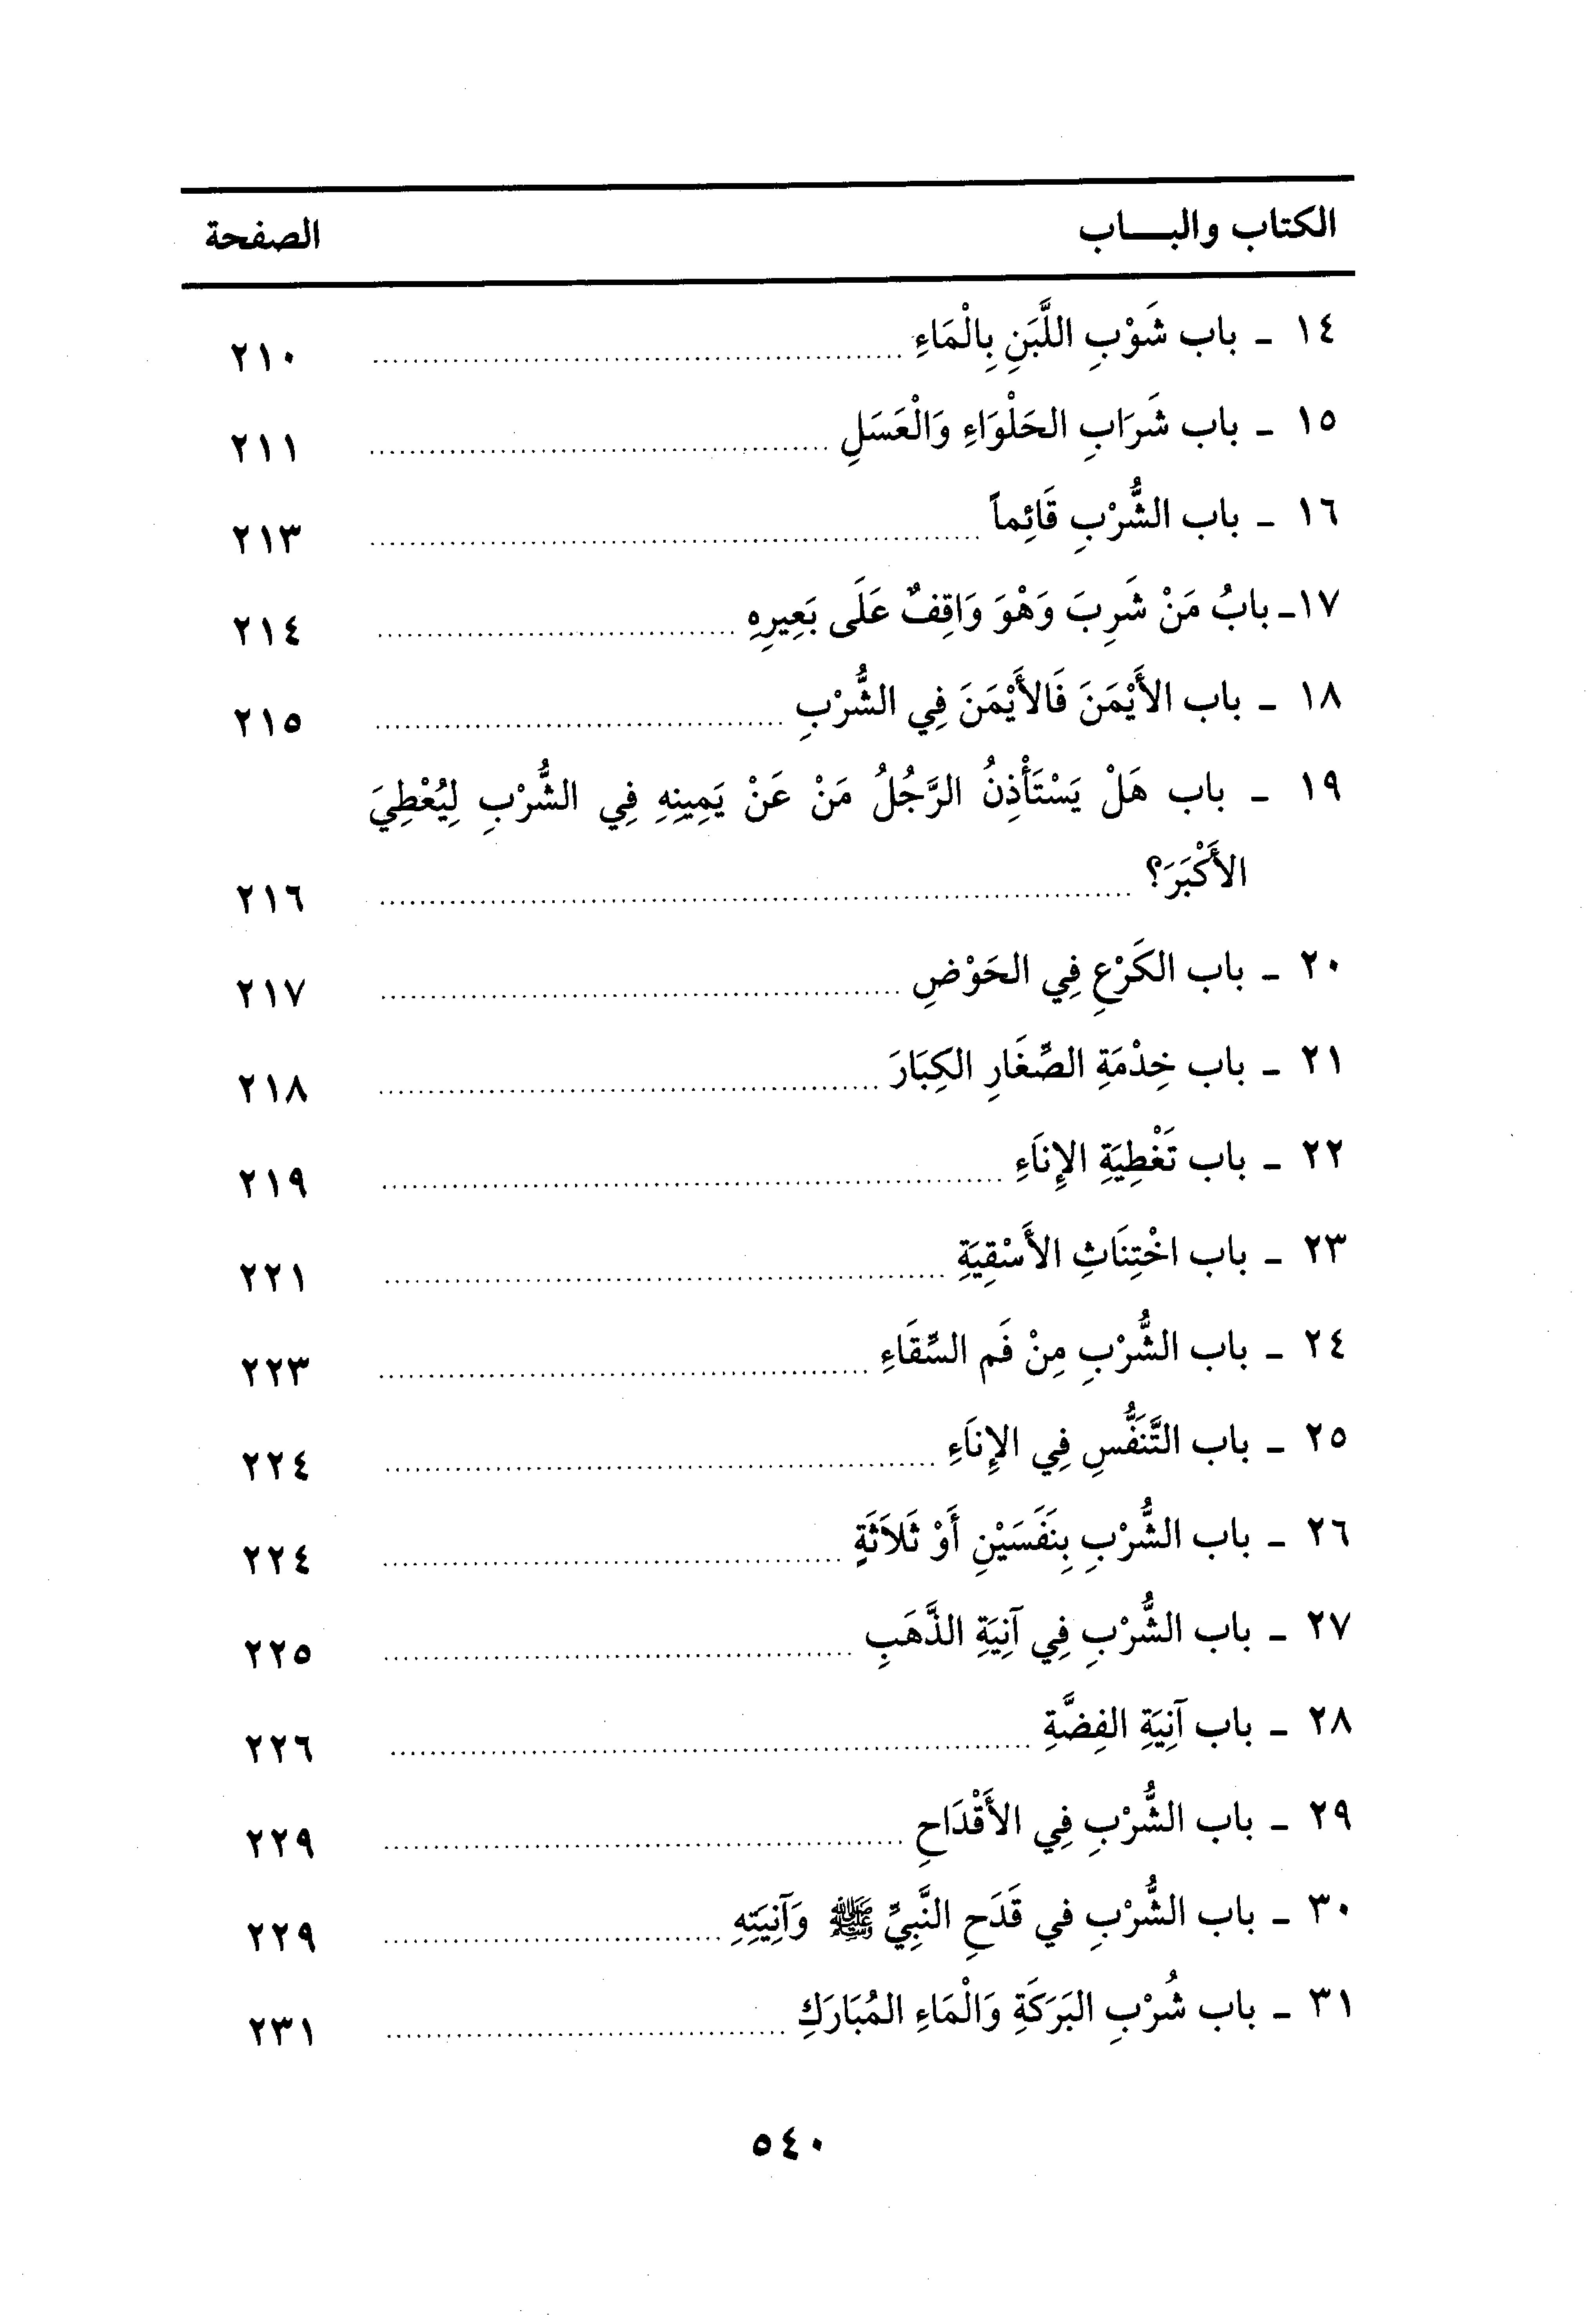 الكتاب والبــاب الصفحة
١٤ - باب شَوْبِ اللَّبَنِ بِالْمَاءِ ........ ٢١٠
١٥ - باب شَرَابِ الحَلْوَاءِ وَالْعَسَلِ ........ ٢١١
١٦ - باب الشُّرْبِ قَائِماً ........ ٢١٣
١٧- بابُ مَنْ شَرِبَ وَهْوَ وَاقِفٌ عَلَى بَعِيرِهِ ........ ٢١٤
١٨ - باب الأَيْمَنَ فَالأَيْمَنَ فِي الشُّرْبِ ........ ٢١٥
١٩ - باب هَلْ يَسْتَأْذِنُ الرَّجُلُ مَنْ عَنْ يَمِينِهِ فِي الشُّرْبِ لِيُعْطِيَ
الأَكْبَرَ؟ ........ ٢١٦
٢٠ - باب الكَرْعِ فِي الحَوْضِ ........ ٢١٧
٢١ - باب خِدْمَةِ الصِّغَارِ الكِبَارَ ........ ٢١٨
٢٢ - باب تَغْطِيَةِ الإِنَاءِ ........ ٢١٩
٢٣ - باب اخْتِنَاثِ الأَسْقِيَةِ ........ ٢٢١
٢٤ - باب الشُّرْبِ مِنْ فَم السِّقَاءِ ........ ٢٢٣
٢٥ - باب التَّنَفُّسِ فِي الإِنَاءِ ........ ٢٢٤
٢٦ - باب الشُّرْبِ بِنَفَسَيْنِ أَوْ ثَلاَثَةٍ ........ ٢٢٤
٢٧ - باب الشُّرْبِ فِي آنِيَةِ الذَّهَبِ ........ ٢٢٥
٢٨ - باب آنِيَةِ الفِضَّةِ ........ ٢٢٦
٢٩ - باب الشُّرْبِ فِي الأَقْدَاحِ ........ ٢٢٩
٣٠ - باب الشُّرْبِ في قَدَحِ النَّبِيِّ ﷺ وَآنِيَتِهِ ........ ٢٢٩
٣١ - باب شُرْبِ البَرَكَةِ وَالْمَاءِ المُبَارَكِ ........ ٢٣١
٥٤٠